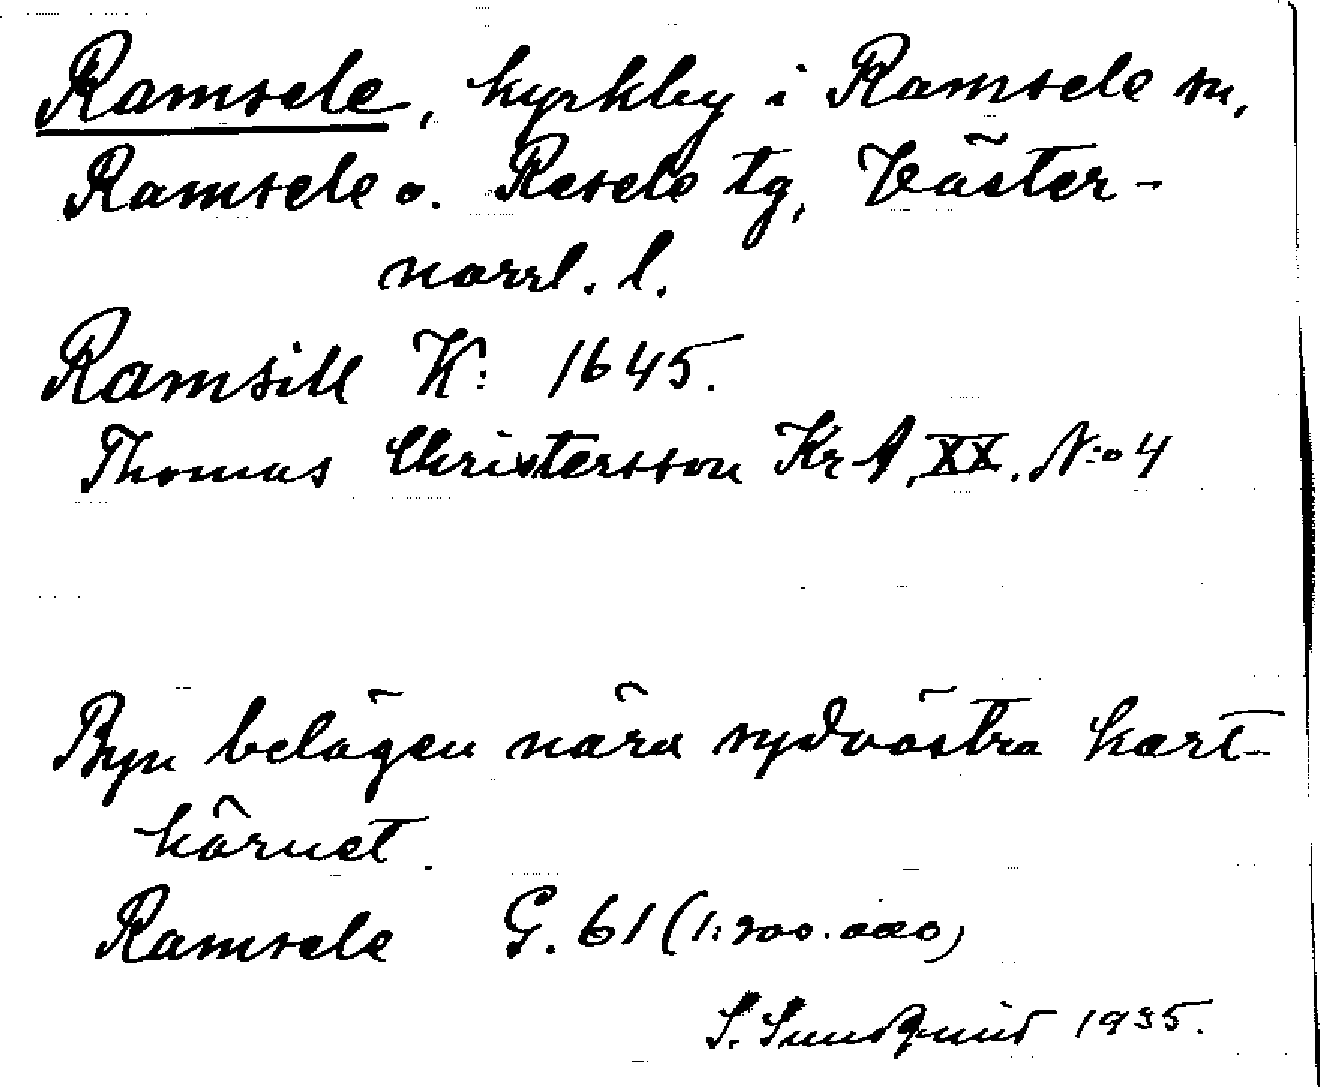 Ramsele, kyrkby i Ramsele sn,
Ramsele o. Resele tg, Väster-
norrl. l.
Ramsill K: 1645.
Thomas Christersson Kr A, XX. N:o 4
Byn belägen nära sydvästra kart-
hörnet.
Ramsele G. 61 (1:200.000)
S. Sundqvist 1935.